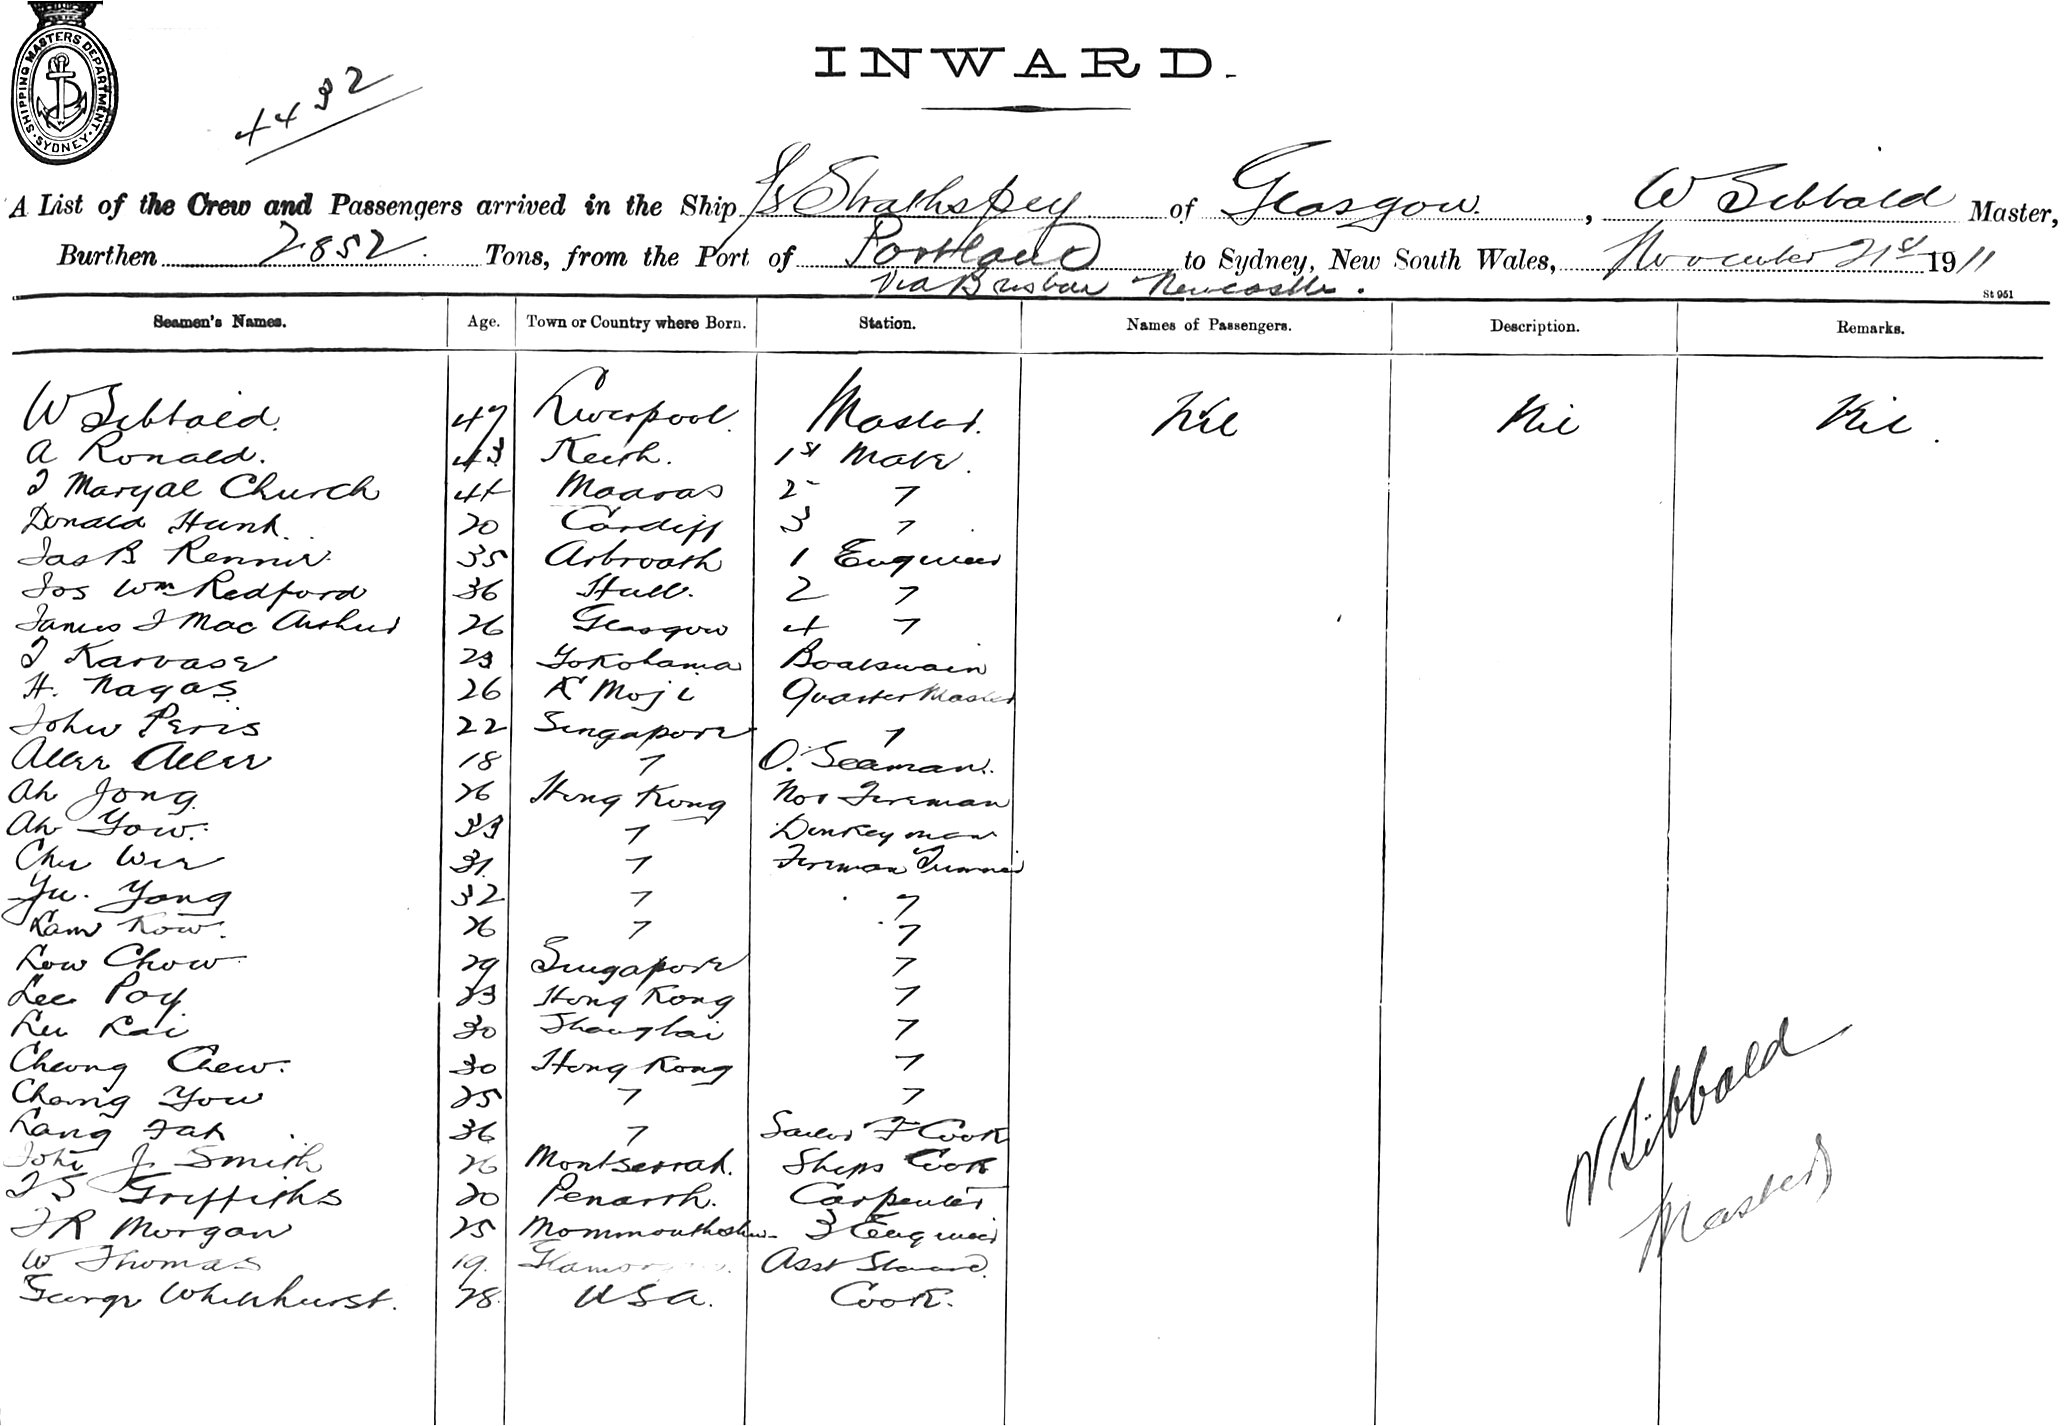 SHIPPING MASTERS DEPARTMENT. SYDNEY
4432
INWARD.
A List of the Crew and Passengers arrived in the Ship SS Strathspey of Glasgow, W Sibbald Master,
Burthen 2852 Tons, from the Port of Portland to Sydney, New South Wales, November 21st 1911
Via Brisbane Newcastle.
St 951
Seamen's Names. Age. Town or Country where Born. Station. Names of Passengers. Description. Remarks.
W Sibbald. 47 Liverpool. Master. Nil Nil Nil
A Ronald. 43 Keith. 1st Mate.
Church 44 Madras 2 "
Donald Hunt. 20 Cardiff 3 "
Jas B Rennie 35 Arbroath 1 Engineer
Jos Wm Redford 36 Hull. 2 "
James J MacArthur 26 Glasgow 4 "
23 Yokohama Boatswain
H. Nagas 26 Moji Quarter Master
John Peris 22 Singapore "
18 " O. Seaman.
Ah Jong 26 Hong Kong No 1 Fireman
Ah Yow. 33 " Donkeyman
31 " Fireman Trimmer
Yu. Yong 32 " "
Kow. 26 " "
Low Chow 29 Singapore "
Lee Poy 23 Hong Kong "
Lai 30 Shanghai "
Cheong Chew. 30 Hong Kong "
Yow 25 " "
36 " Cook
John J. Smith 26 Montserrat. Ships Cook
Griffiths 20 Penarth. Carpenter
Morgan 25 3 Engineer
W Thomas 19. Asst Steward.
George Whitehurst. 28 USA. Cook.
W Sibbald
Master